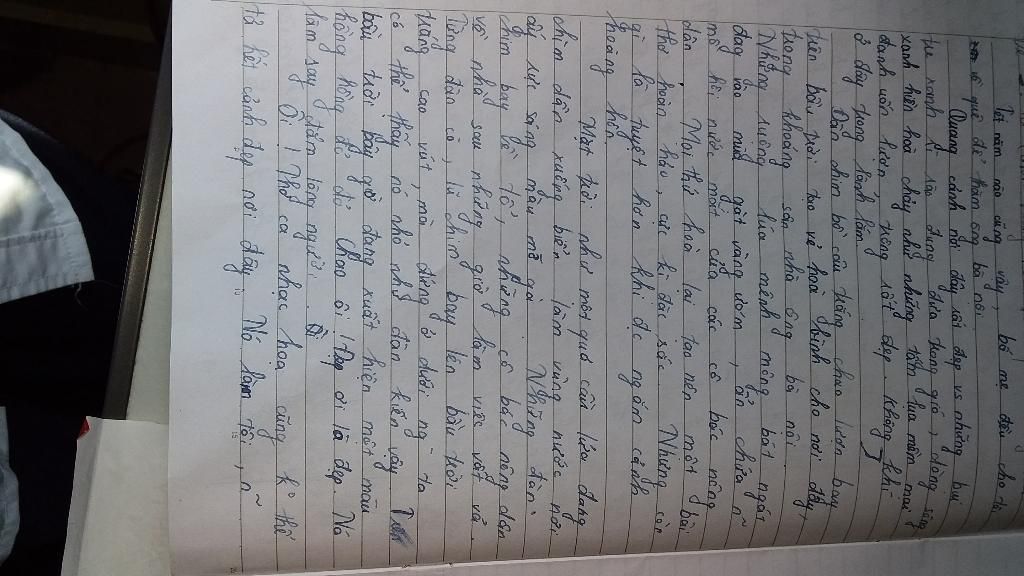 Tết năm nào cũng vậy, bố mẹ đều cho tôi
về quê để thăm ông bà nội.
Quang cảnh nơi đây rất đẹp vs những bụi
tre xanh kì rào đung đưa trong gió, dòng sông
xanh hiền hòa chảy như những tấm lụa mềm mại
đanh uốn lượn, trông rất đẹp. Không khí
ở đây trong lành lắm
Đàn chim bồ câu trắng chao lượn bay
trên bầu trời tỏa vẻ hoà bình cho nơi đây,
trong khoảng sân nhà ông bà nội.
Những ruộng lúa mênh mông bát ngát
đag vào mùa gặt vàng ươm, ẩn chứa n~
mồ hôi nước mắt của các cô bác nông
dân. Mọi thứ hoà lại tạo nên một bài
thơ hoàn hảo, cực kì đặc sắc. Nhưng còn
gì là tuyệt hơn khi đc ngắm cảnh
hoàng hôn.
Mặt trời như một quả cầu lửa đang
chìm dần xuống biển làm vùng nước nơi
ấy rực sáng màu mỡ gà. Những đàn
chim bay về tổ, những cô bác nông dân
về nhà sau những giờ làm việc vất vả.
Từng đàn cò, lũ chim bay lên bầu trời
trắng cao vút, mà đứng ở dưới ng ta
có thể thấy nó nhỏ như đàn kiến vậy.
bầu trời bây giờ đang xuất hiện một màu
hồng hồng đo đỏ. Chao ôi! Đẹp ơi là đẹp. Nó
làm say đắm lòng người.
Ôi! Thơ ca nhạc hoạ cũng k° thể
tả hết cảnh đẹp nơi đây. Nó làm tôi, n~